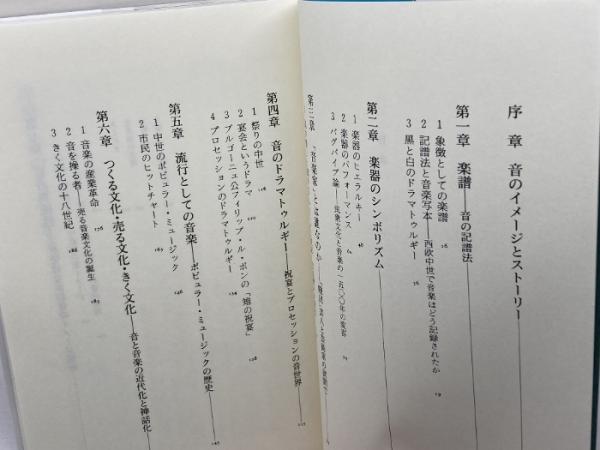 序 章 音のイメージとストーリー
第一章 楽譜――音の記譜法
1 象徴としての楽譜
2 記譜法と音楽写本――西欧中世で音楽はどう記録されたか
3 黒と白のドラマトゥルギー
第二章 楽器のシンボリズム
1 楽器のヒエラルキー
2 楽器のパフォーマンス
3 バグパイプ論――民衆文化と音楽の一五〇〇年の変容
第三章 「音楽家」とは誰なのか
第四章 音のドラマトゥルギー――祝宴とプロセッションの音世界
1 祭りの中世
2 宴会というドラマ
3 ブルゴーニュ公フィリップ・ル・ボンの「雉の祝宴」
4 プロセッションのドラマトゥルギー
第五章 流行としての音楽――ポピュラー・ミュージックの歴史
1 中世のポピュラー・ミュージック
2 市民のヒットチャート
第六章 つくる文化・売る文化・きく文化――音と音楽の近代化と神話化
1 音楽の産業革命
2 音を操る者――売る音楽文化の誕生
3 きく文化の十八世紀